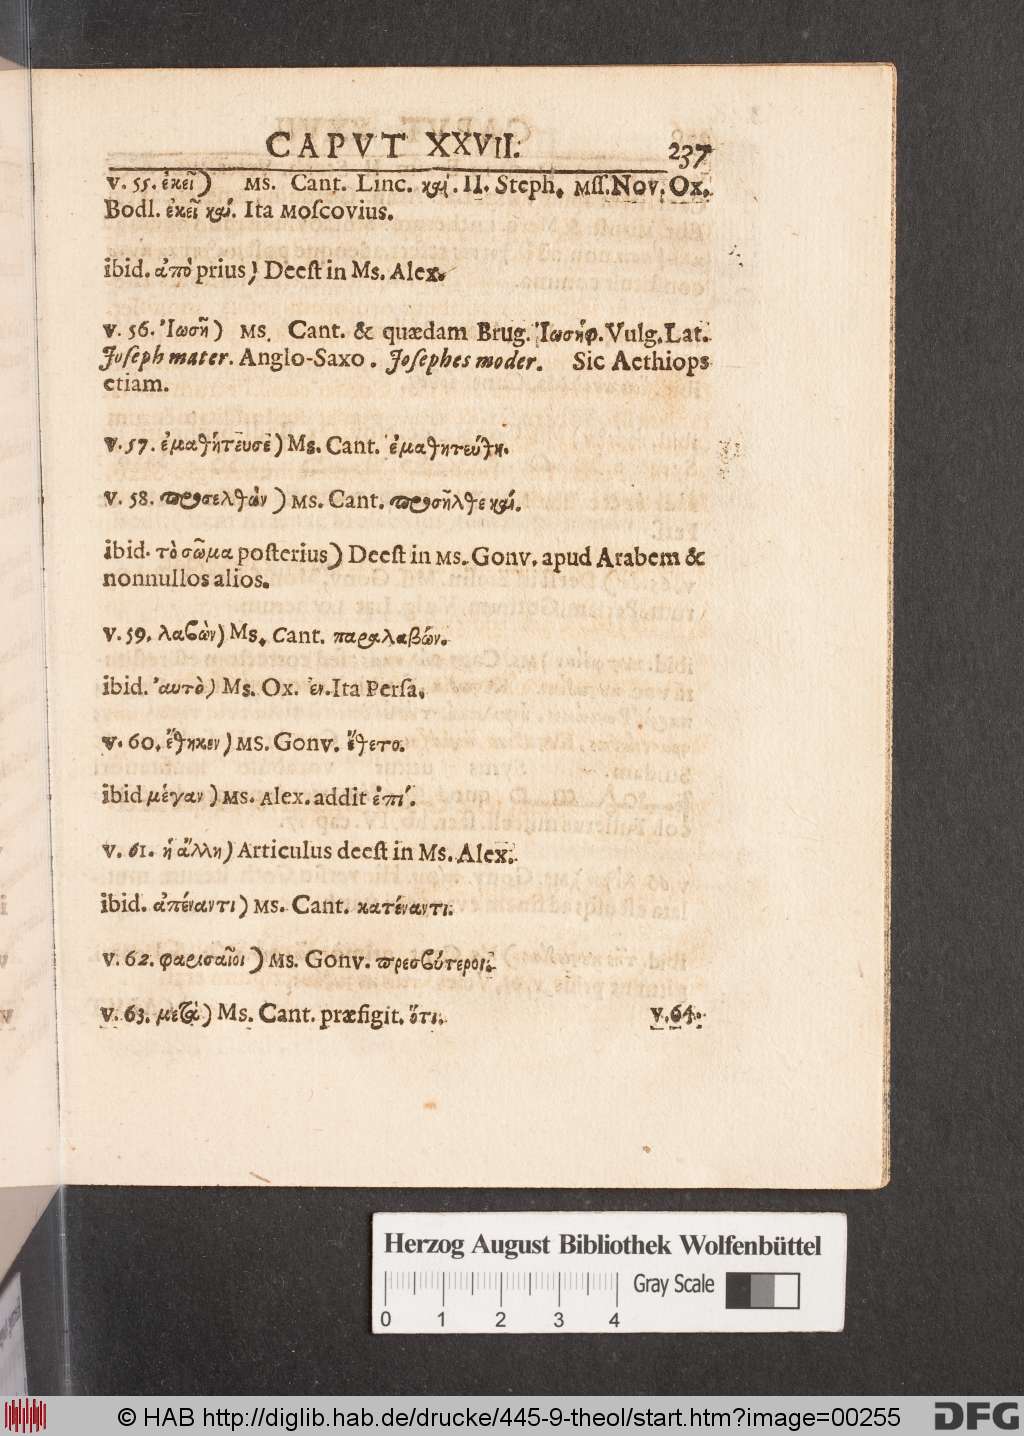 CAPVT XXVII. 237
v. 55. ἐκεῖ) Ms. Cant. Linc. καὶ. II. Steph. Mſſ. Nov. Ox.
Bodl. ἐκεῖ καὶ. Ita Moſcovius.
ibid. ἀπὸ prius) Deeſt in Ms. Alex.
v. 56. Ἰωσῆ) Ms. Cant. & quædam Brug. Ἰωσήφ. Vulg. Lat.
Joſeph mater. Anglo-Saxo. Joſephes moder. Sic Aethiops
etiam.
v. 57. ἐμαθήτευσε) Ms. Cant. ἐμαθητεύθη.
v. 58. προσελθὼν) Ms. Cant. προσῆλθε καὶ.
ibid. τὸ σῶμα poſterius) Deeſt in Ms. Gonv. apud Arabem &
nonnullos alios.
v. 59. λαβὼν) Ms. Cant. παραλαβών.
ibid. αὐτὸ) Ms. Ox. ἐν. Ita Perſa.
v. 60. ἔθηκεν) MS. Gonv. ἔθετο.
ibid μέγαν) Ms. Alex. addit ἐπί.
v. 61. ἡ ἄλλη) Articulus deeſt in Ms. Alex.
ibid. ἀπέναντι) Ms. Cant. κατέναντι.
v. 62. φαρισαῖοι) Ms. Gonv. πρεσβύτεροι.
v. 63. μετὰ) Ms. Cant. præfigit. ὅτι. v. 64.
Herzog August Bibliothek Wolfenbüttel
Gray Scale
0 1 2 3 4
© HAB http://diglib.hab.de/drucke/445-9-theol/start.htm?image=00255 DFG